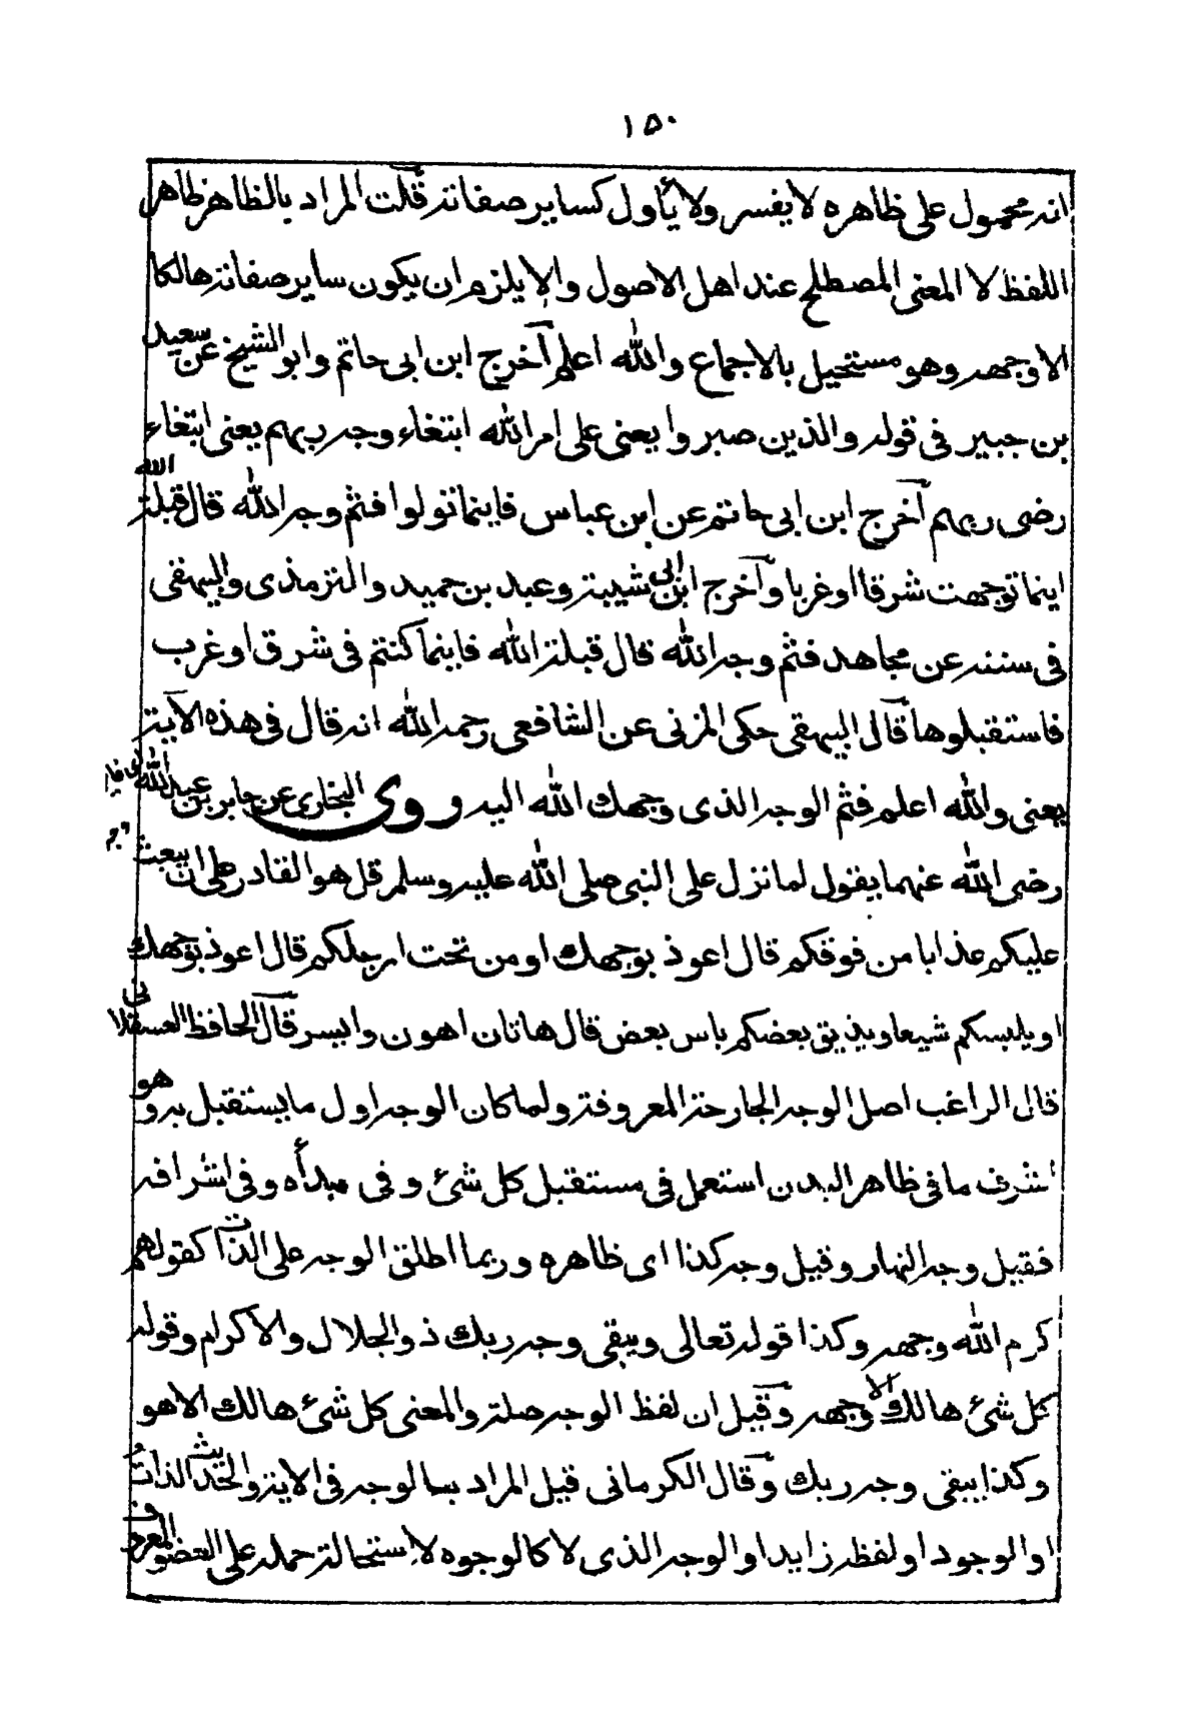 ١٥٠
انه محمول على ظاهره لا يفسر ولا يأول كساير صفاته قلت المراد بالظاهر ظاهر
اللفظ لا المعنى المصطلح عند اهل الاصول والا يلزم ان يكون ساير صفاته هالكا
الا وجهه وهو مستحيل بالاجماع والله اعلم آخرج ابن ابى حاتم وابو الشيخ عن سعيد
بن جبير فى قوله والذين صبروا يعنى على امر الله ابتغاء وجه ربهم يعنى ابتغاء
رضى ربهم آخرج ابن ابى حاتم عن ابن عباس فاينما تولوا فثم وجه الله قال قبلة الله
اينما توجهت شرقا او غربا وآخرج ابن ابى شيبة وعبد بن حميد والترمذى والبيهقى
فى سننه عن مجاهد فثم وجه الله قال قبلة الله فاينما كنتم فى شرق او غرب
فاستقبلوها قال البيهقى حكى المزنى عن الشافعى رحمه الله انه قال فى هذه الآية
يعنى والله اعلم فثم الوجه الذى وجهك الله اليه وروى البخارى عن جابر بن عبد الله
رضى الله عنهما يقول لما نزل على النبى صلى الله عليه وسلم قل هو القادر على ان يبعث
عليكم عذابا من فوقكم قال اعوذ بوجهك او من تحت ارجلكم قال اعوذ بوجهك
او يلبسكم شيعا ويذيق بعضكم باس بعض قال هاتان اهون وايسر قال الحافظ العسقلانى
قال الراغب اصل الوجه الجارحة المعروفة ولما كان الوجه اول ما يستقبل به وهو
اشرف ما فى ظاهر البدن استعمل فى مستقبل كل شئ وفى مبدأه وفى اشرافه
فقيل وجه النهار وقيل وجه كذا اى ظاهره وربما اطلق الوجه على الذات كقولهم
كرم الله وجهه وكذا قوله تعالى ويبقى وجه ربك ذو الجلال والاكرام وقوله
كل شئ هالك الا وجهه وقيل ان لفظ الوجه صلة والمعنى كل شئ هالك الا هو
وكذا يبقى وجه ربك وقال الكرمانى قيل المراد بالوجه فى الاية والحديث الذات
او الوجود او لفظه زايد او الوجه الذى لا كالوجوه لاستحالة حمله على العضو المعروف